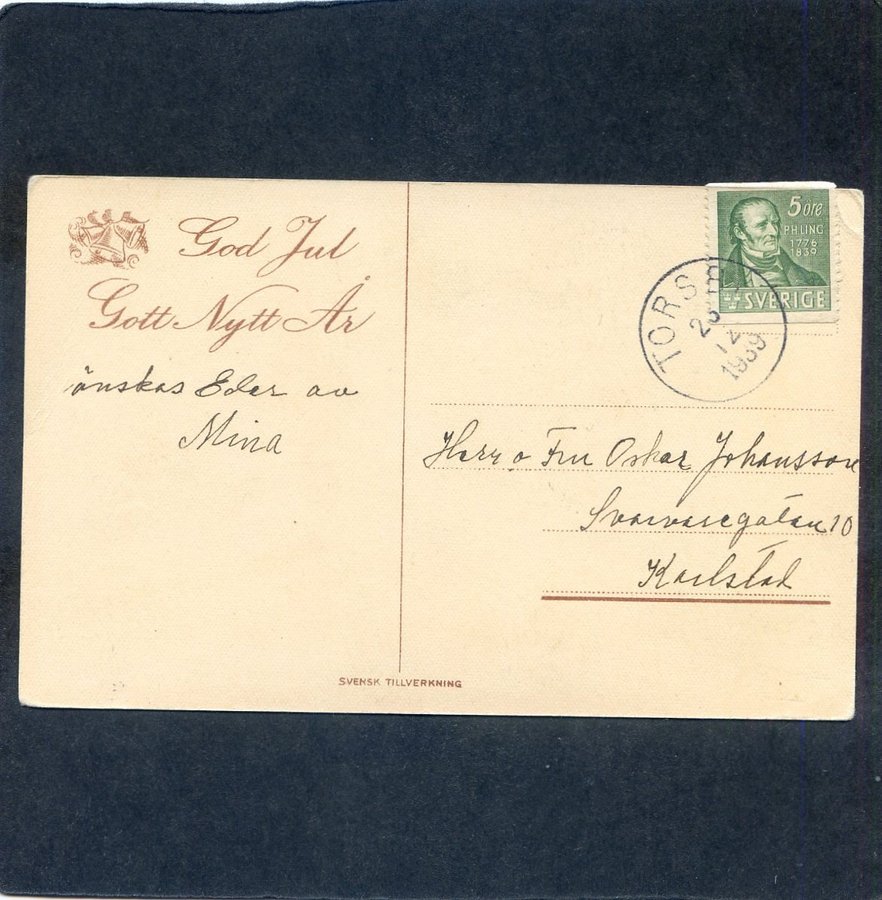 God Jul
Gott Nytt År
önskas Eder av
Mina
5 öre
P.H.LING
1776
1839
SVERIGE
TORSBY
12
1939
Herr o Fru Oskar Johansson
Svarvaregatan 10
Karlstad
SVENSK TILLVERKNING